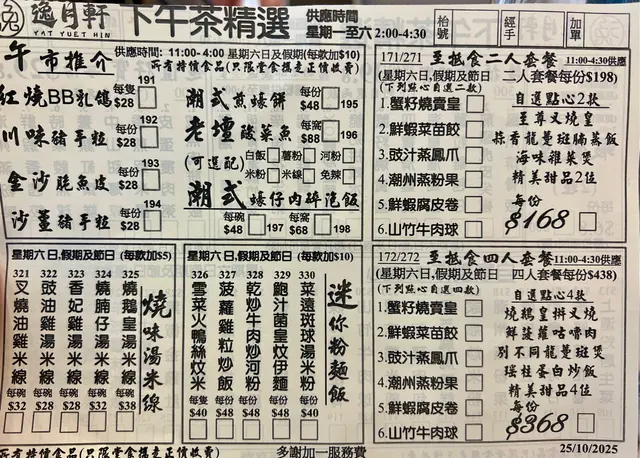 逸月軒
YAT YUET HIN
下午茶精選
供應時間
星期一至六 2:00-4:30
枱號
經手
加單
午市推介
供應時間: 11:00-4:00 星期六日及假期(每款加$10)
所有特價食品(只限堂食搵走正價收費)
191
紅燒BB乳鴿
每隻
$28
192
川味豬手粒
每份
$28
193
金沙脆魚皮
每份
$28
194
沙薑豬手粒
每份
$28
潮式煎蠔餅
每份
$48
195
老壇酸菜魚
每窩
$88
196
(可選配)
白飯
薯粉
河粉
米粉
米線
免辣
潮式蠔仔肉碎泡飯
每碗
$48
197
每窩
$68
198
171/271
至抵食二人套餐
11:00-4:30供應
(星期六日,假期及節日 二人套餐每份$198)
(下列點心自選二款)
1.蟹籽燒賣皇
2.鮮蝦菜苗餃
3.豉汁蒸鳳爪
4.潮州蒸粉果
5.鮮蝦腐皮卷
6.山竹牛肉球
自選點心2款
至尊叉燒皇
蒜香龍躉斑腩蒸飯
海味雜菜煲
精美甜品2位
每份
$168
星期六日,假期及節日 (每款加$5)
燒味湯米線
321
叉燒湯米線
每碗
$32
322
豉油雞湯米線
每碗
$28
323
香妃雞湯米線
每碗
$28
324
燒腩仔湯米線
每碗
$32
325
燒鵝皇湯米線
每碗
$38
星期六日,假期及節日 (每款加$10)
迷你粉麵飯
326
雪菜火鴨絲炆米
每份
$40
327
菠蘿雞粒炒飯
每份
$40
328
乾炒牛肉炒河粉
每份
$48
329
鮑汁菌皇炆伊麵
每份
$48
330
菜遠斑球湯米粉
每碗
$48
172/272
至抵食四人套餐
11:00-4:30供應
(星期六日,假期及節日 四人套餐每份$438)
(下列點心自選四款)
1.蟹籽燒賣皇
2.鮮蝦菜苗餃
3.豉汁蒸鳳爪
4.潮州蒸粉果
5.鮮蝦腐皮卷
6.山竹牛肉球
自選點心4款
燒鵝皇拼叉燒
鮮菠蘿咕嚕肉
列不同龍躉斑煲
瑤柱蛋白炒飯
精美甜品4位
每份
$368
所有特價食品(只限堂食搵走正價收費)
多謝加一服務費
25/10/2025